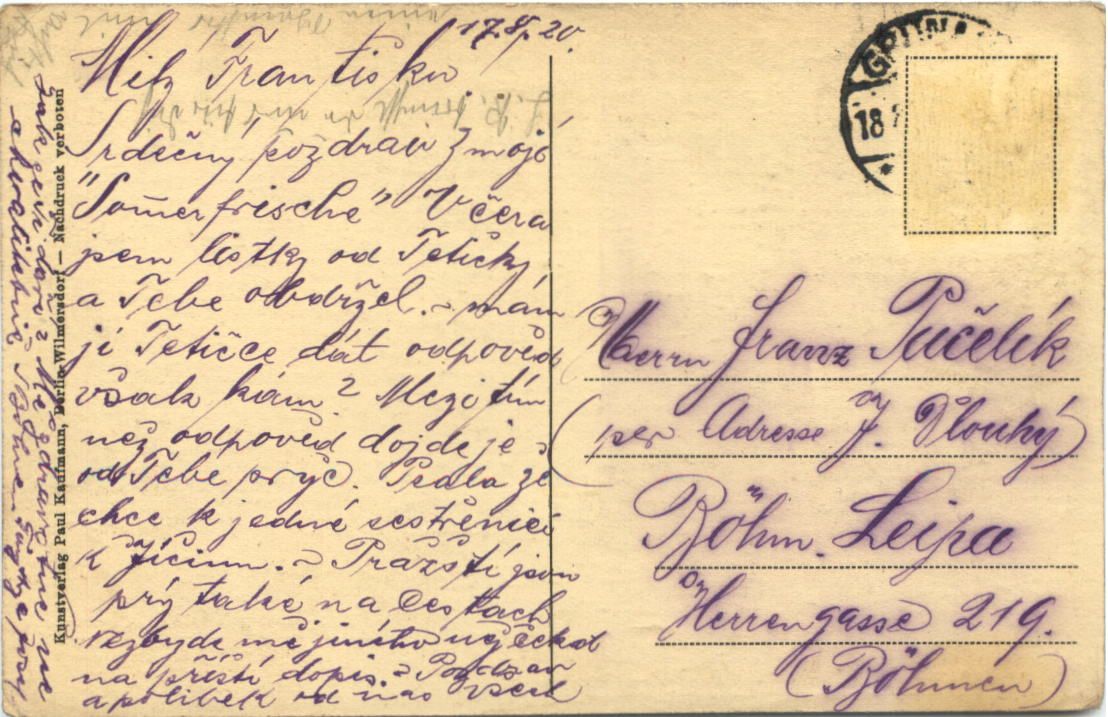 17.8.20.
Milý Františku
Srdečný pozdrav z mojé
"Somerfrische" Včera
jsem lístky od Tetičky
a Tebe obdržel. - mám
jí Tetičce dát odpověd
však kam? Mezi tím
než odpověd dojde je
od Tebe pryč. Psala že
chce k jedné sestřenici
k Jičínu. - Pražští jsou
prý také na cestach
nezbyde mě jiného než čekat
na příští dopis. - Pozdrav
a polibek od nás všech
Jak se Vi daří? Me zdravotně
Kunstverlag Paul Kaufmann, Berlin-Wilmersdorf — Nachdruck verboten
GRÜN
18
Herrn Franz Pučelík
(per Adresse J. Dlouhý)
Böhm. Leipa
Herrengasse 219.
(Böhmen)